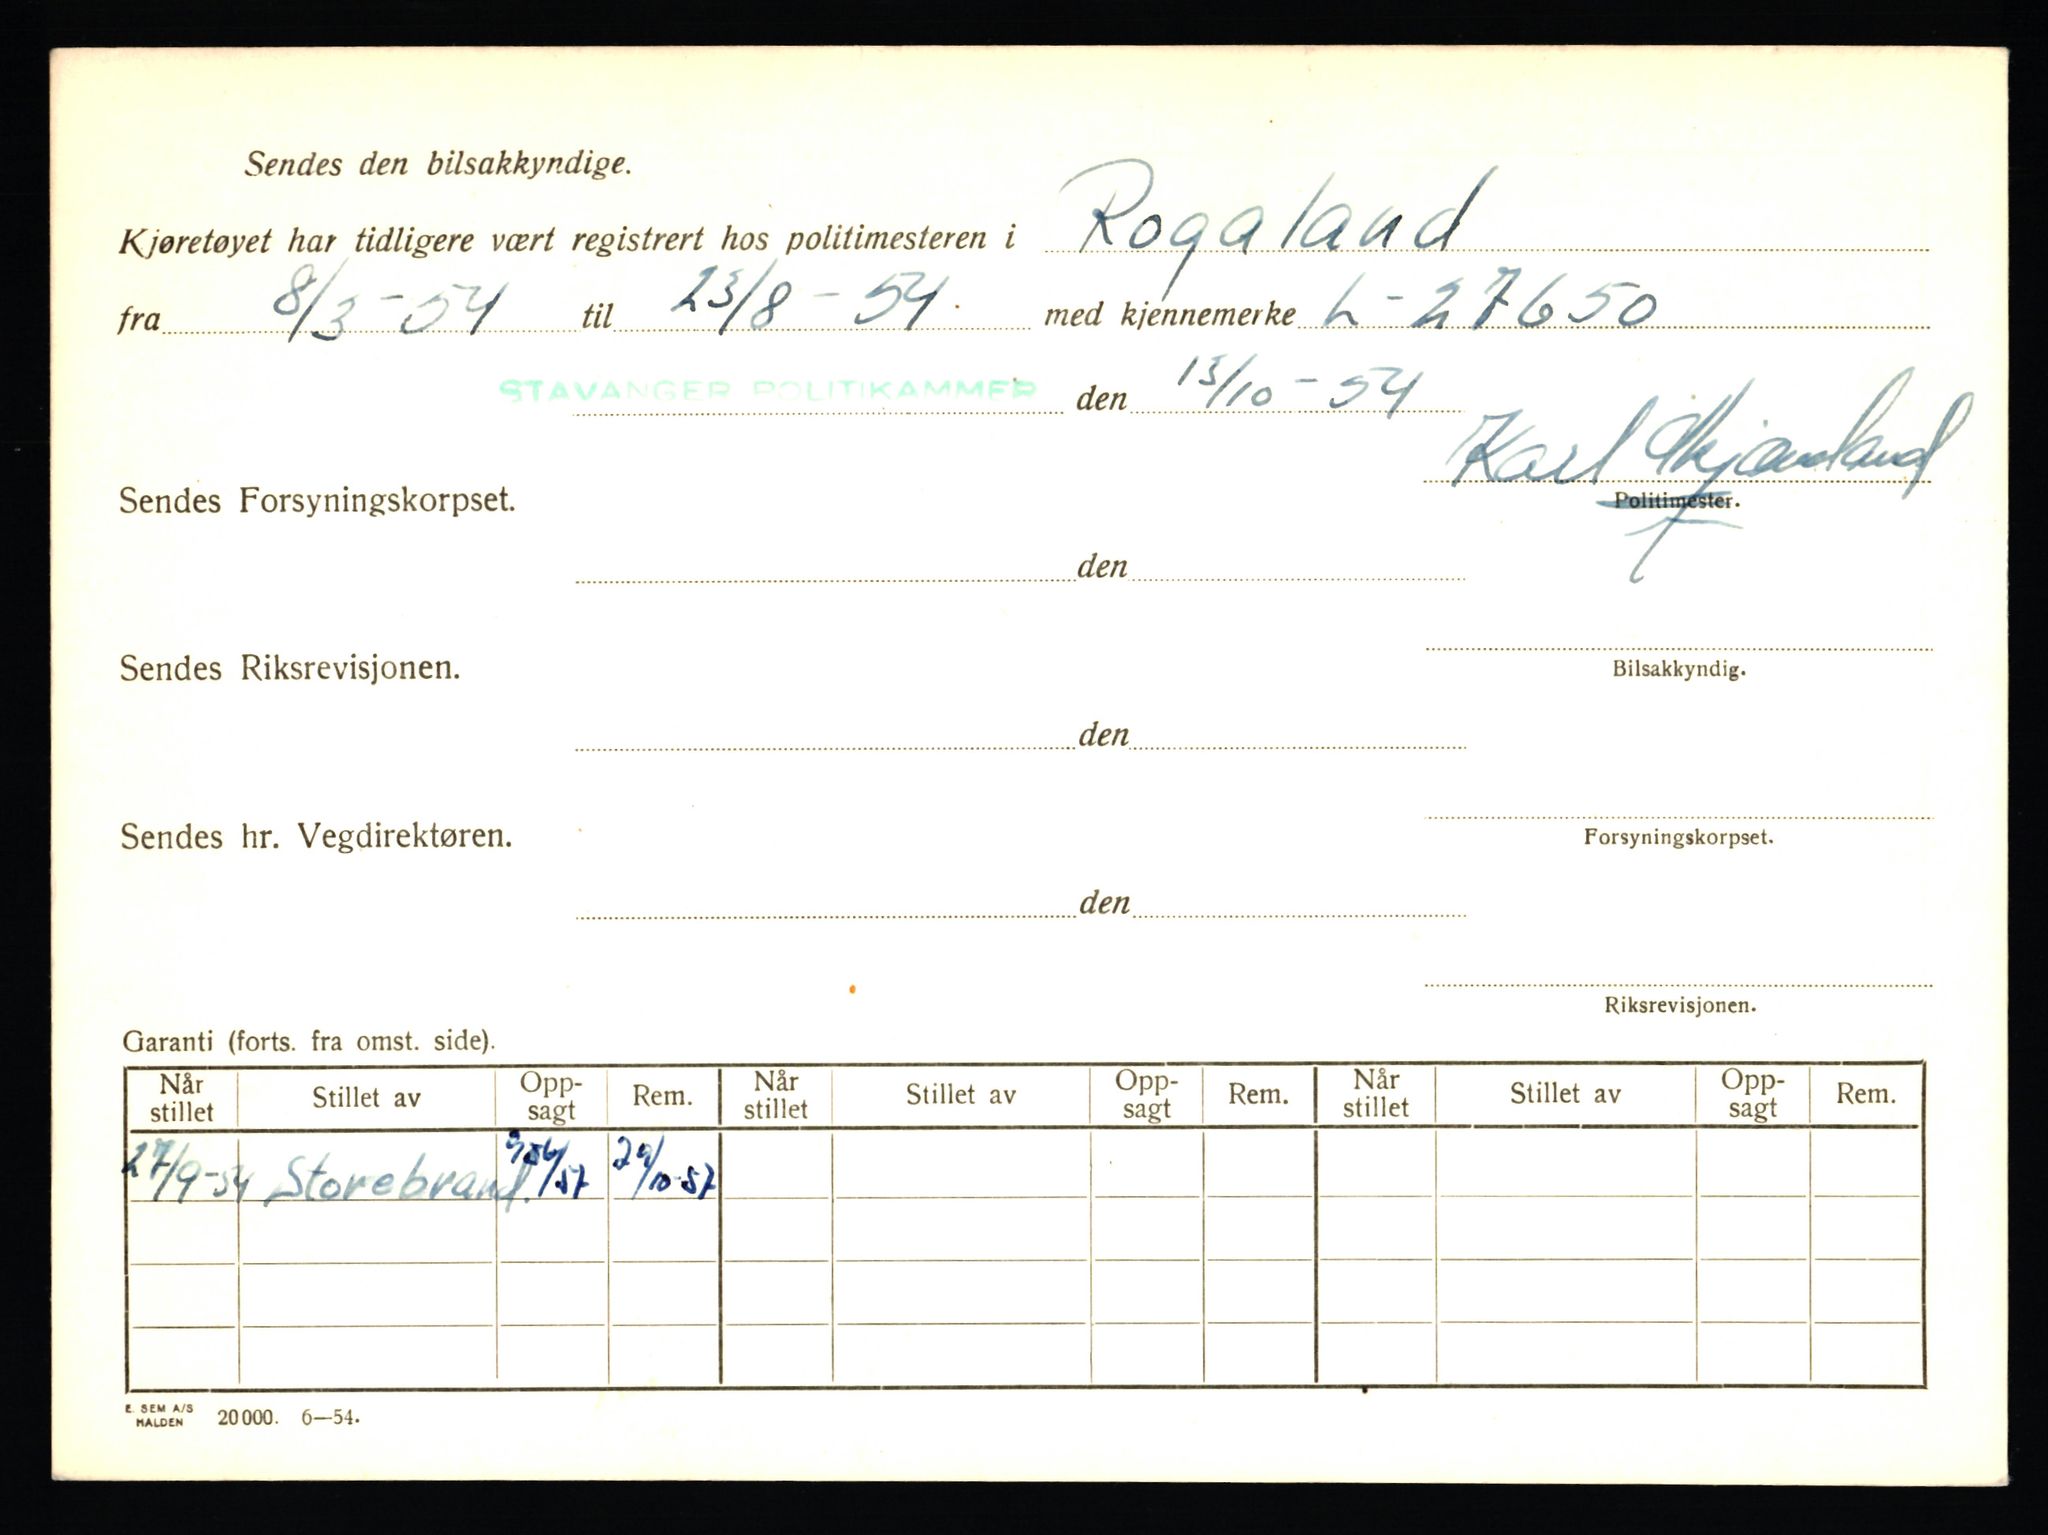 Sendes den bilsakkyndige.
Kjøretøyet har tidligere vært registrert hos politimesteren i Rogaland
fra 8/3-54 til 23/8-54 med kjennemerke L-27650
STAVANGER POLITIKAMMER den 13/10-54
Karl
Sendes Forsyningskorpset. Politimester.
den
Sendes Riksrevisjonen. Bilsakkyndig.
den
Sendes hr. Vegdirektøren. Forsyningskorpset.
den
Riksrevisjonen.
Garanti (forts. fra omst. side).
Når stillet Stillet av Opp-sagt Rem. Når stillet Stillet av Opp-sagt Rem. Når stillet Stillet av Opp-sagt Rem.
27/9-54 Storebrand. /57 29/10-57
E. SEM A/S
HALDEN 20000. 6—54.